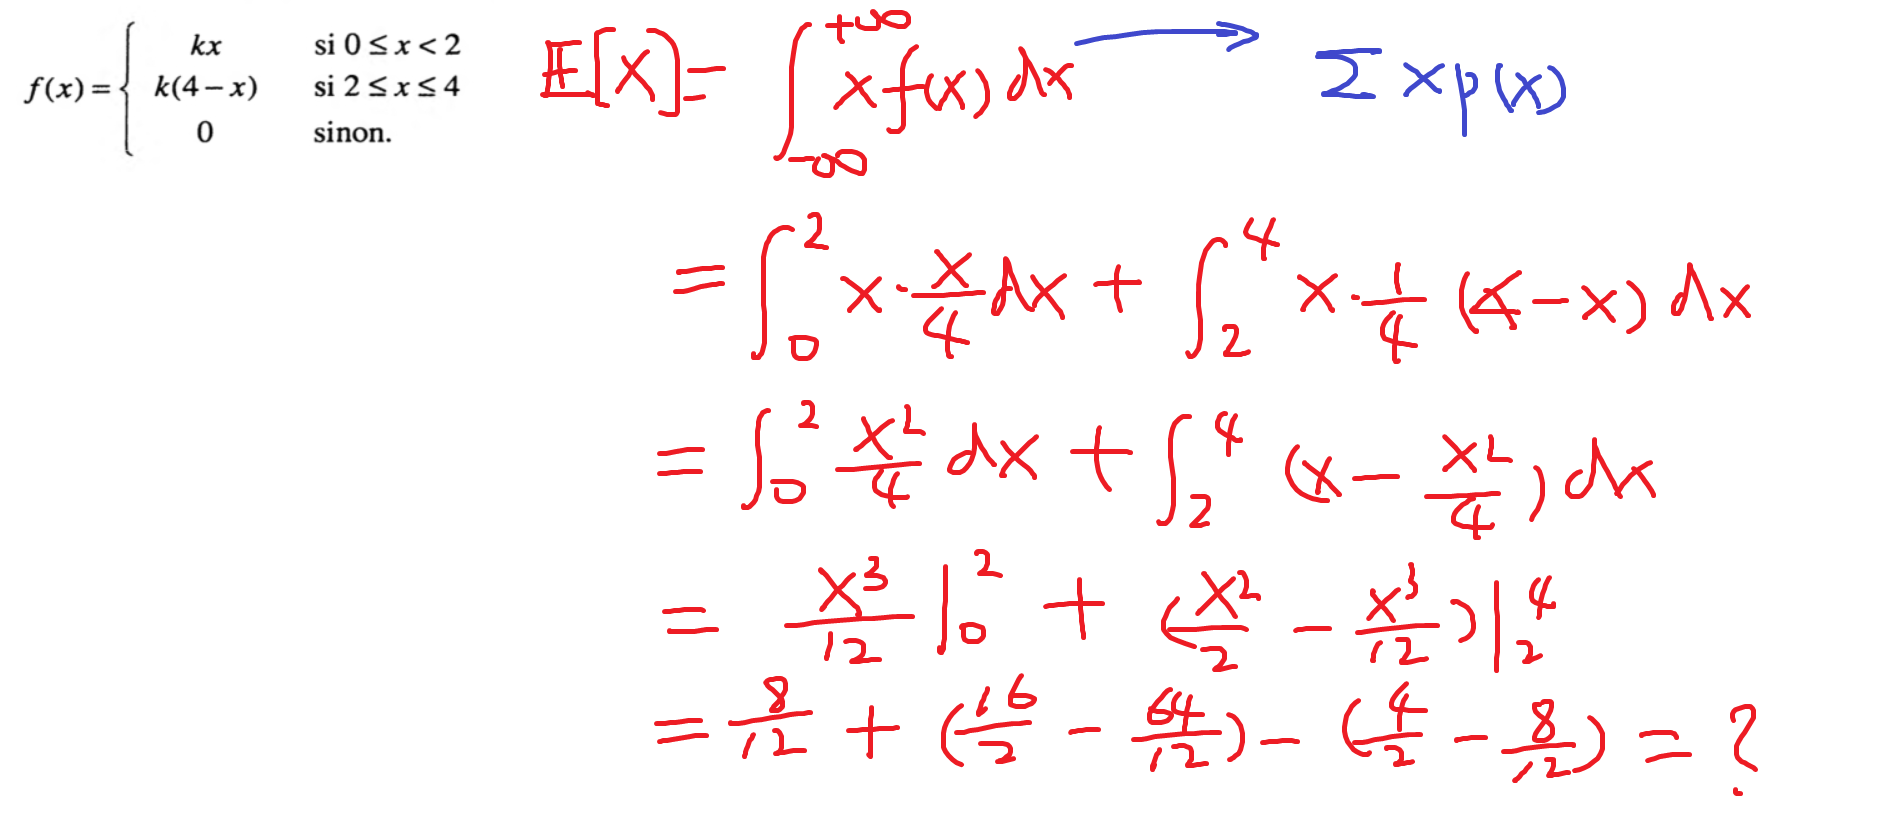 f(x) = { kx si 0 ≤ x < 2
k(4 − x) si 2 ≤ x ≤ 4
0 sinon.
E[X] = ∫_{-∞}^{+∞} x f(x) dx → Σ x p(x)
= ∫_0^2 x · x/4 dx + ∫_2^4 x · 1/4 (4 − x) dx
= ∫_0^2 x²/4 dx + ∫_2^4 (x − x²/4) dx
= x³/12 |_0^2 + (x²/2 − x³/12) |_2^4
= 8/12 + (16/2 − 64/12) − (4/2 − 8/12) = ?